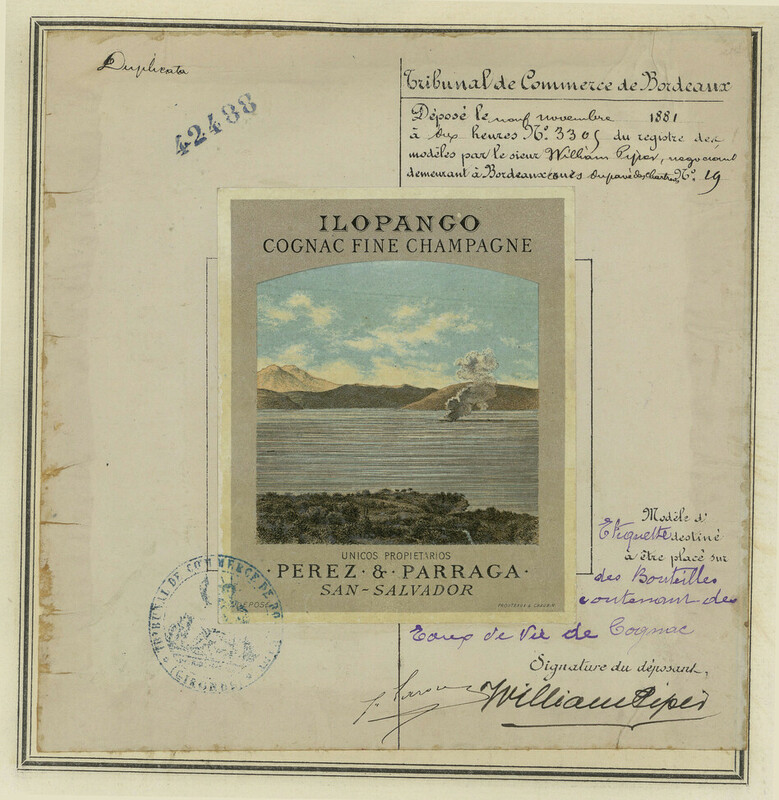 Duplicata
42488
Tribunal de Commerce de Bordeaux
Déposé le neuf novembre 1881
à dix heures N° 3305 du registre des
modèles par le sieur William Piper, négociant
demeurant à Bordeaux cours du pavé des Chartrons N° 19
ILOPANGO
COGNAC FINE CHAMPAGNE
UNICOS PROPIETARIOS
PEREZ & PARRAGA
SAN-SALVADOR
DÉPOSÉ
TRIBUNAL DE COMMERCE DE BORDEAUX
(GIRONDE)
Modèle d'
Etiquette destiné
à être placé sur
des Bouteilles
contenant des
Eaux de Vie de Cognac
Signature du déposant,
William Piper